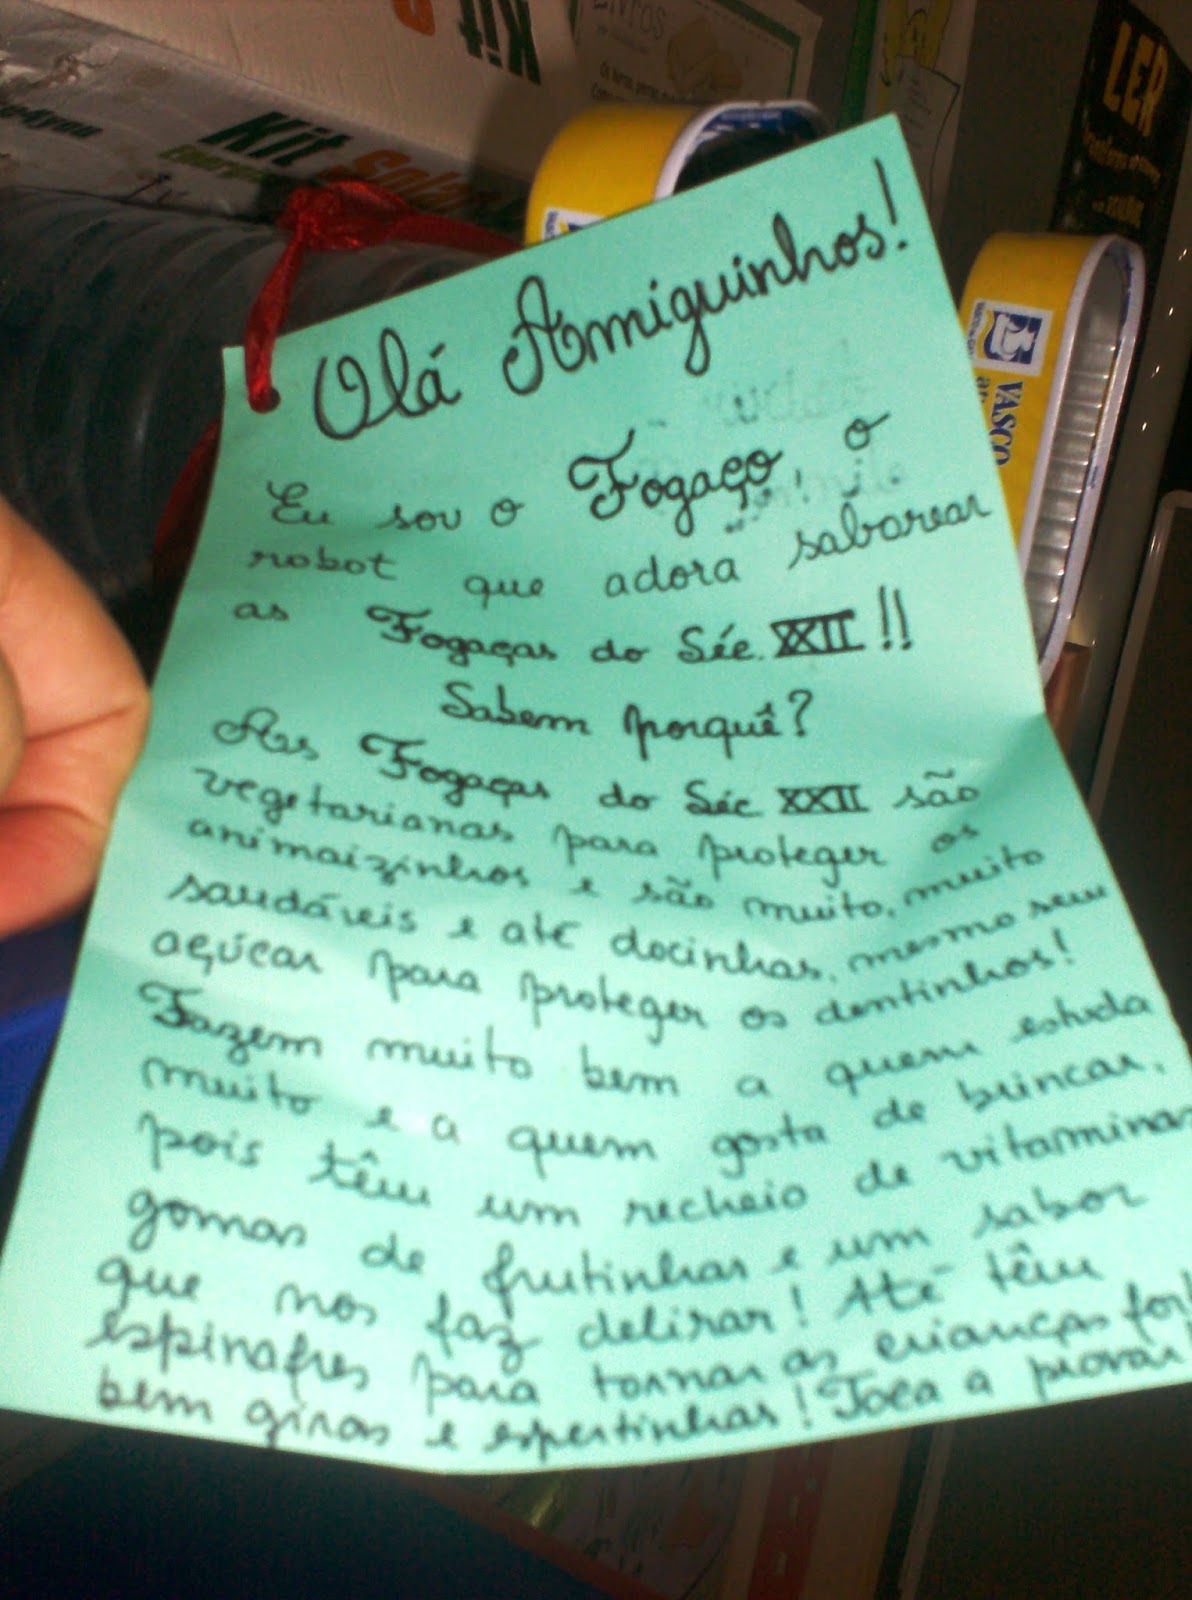 Kit
Livros
Kit Sola
LER
VASCO
Olá Amiguinhos!
Eu sou o Fogaço, o
robot que adora saborear
as Fogaças do Séc. XXII!!
Sabem porquê?
As Fogaças do Séc XXII são
vegetarianas para proteger os
animaizinhos e são muito, muito
saudáveis e até docinhas, mesmo sem
açúcar para proteger os dentinhos!
Fazem muito bem a quem estuda
muito e a quem gosta de brincar,
pois têm um recheio de vitaminas
gomas de frutinhas e um sabor
que nos faz delirar! Até têm
espinafres para tornar as crianças for
bem giras e espertinhas! Toca a provar!